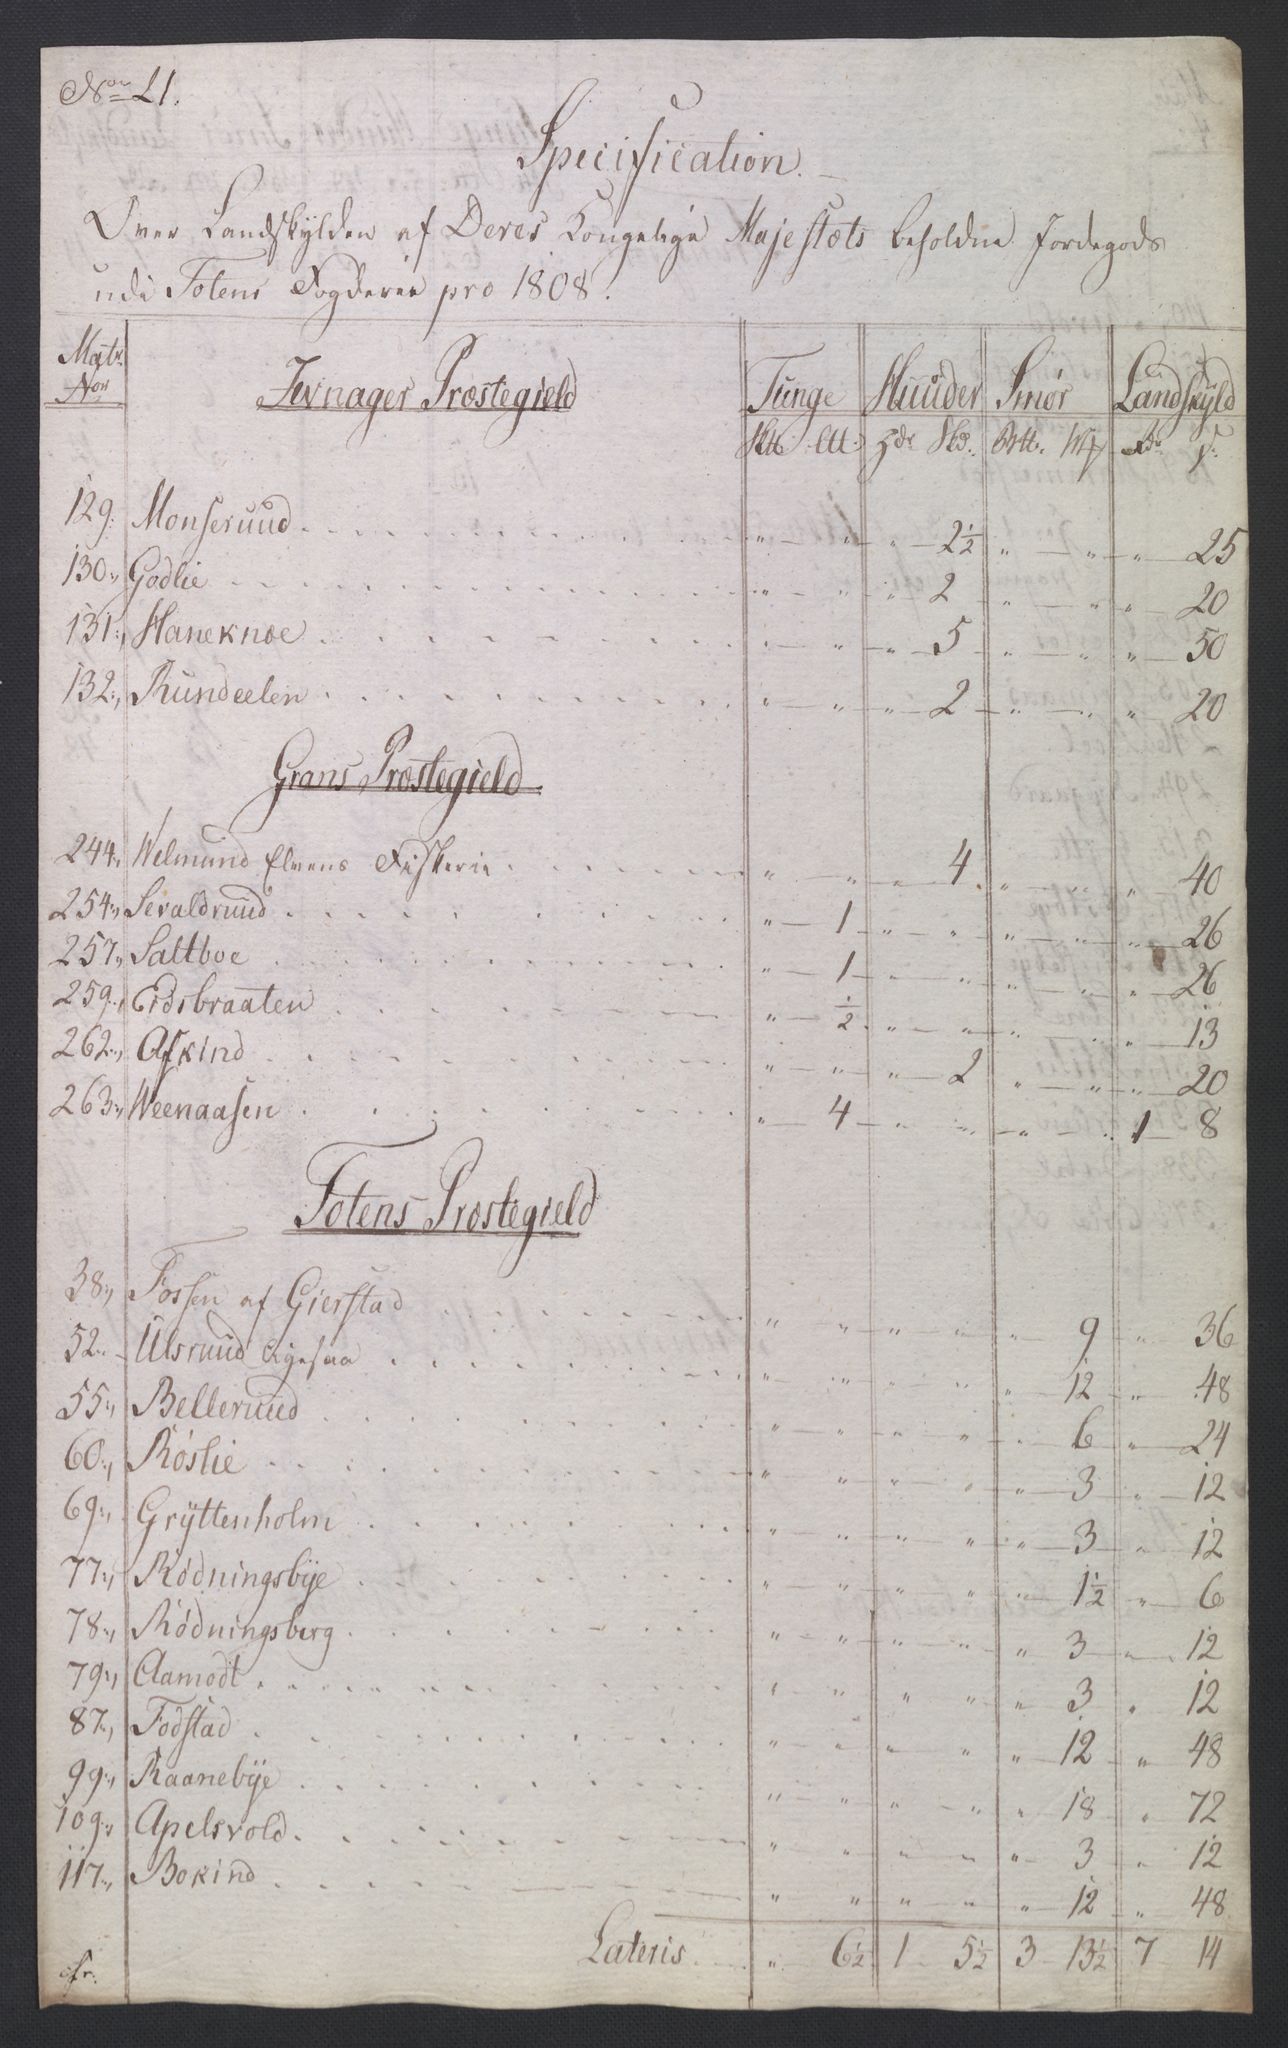 No 21.
Specification.
Over Landskylden af Deres Kongelige Majestæts beholdne Jordegods
udi Totens Fogderie pro 1808.
Matr. Nor | Jevnager Præstegield | Tunge | Huuder | Smør | Landskyld
129. Monseruud . . . " — " — " — 2½ — " — " — " — 25
130. Godlie . . . " — " — " — 2 — " — " — " — 20
131. Haneknoe . . . " — " — " — 5 — " — " — " — 50
132. Rundeelen . . . " — " — " — 2 — " — " — " — 20
Grans Præstegield
244. Welmund Elvens Fiskerie . . . " — " — " — 4 — " — " — " — 40
254. Seraldruud . . . " — 1 — " — " — " — " — " — 26
257. Saltboe . . . " — 1 — " — " — " — " — " — 26
259. Eidsbraaten . . . " — ½ — " — " — " — " — " — 13
262. Askind . . . " — " — " — 2 — " — " — " — 20
263. Weenaasen . . . " — 4 — " — " — " — " — 1 — 8
Totens Præstegield
38. Fossen af Gierstad . . . " — " — " — " — " — 9 — " — 36
52. Ulsruud . . . " — " — " — " — " — 12 — " — 48
55. Belleruud . . . " — " — " — " — " — 6 — " — 24
60. Røslie . . . " — " — " — " — " — 3 — " — 12
69. Grÿttenholm . . . " — " — " — " — " — 3 — " — 12
77. Rødningsbÿe . . . " — " — " — " — " — 1½ — " — 6
78. Rødningsberg . . . " — " — " — " — " — 3 — " — 12
79. Aamodt . . . " — " — " — " — " — 3 — " — 12
87. Fodstad . . . " — " — " — " — " — 12 — " — 48
99. Raanebÿe . . . " — " — " — " — " — 18 — " — 72
109. Apelsvold . . . " — " — " — " — " — 3 — " — 12
117. Bokind . . . " — " — " — " — " — 12 — " — 48
Lateris . . . " 6½ 1 5½ 3 13½ 7 14